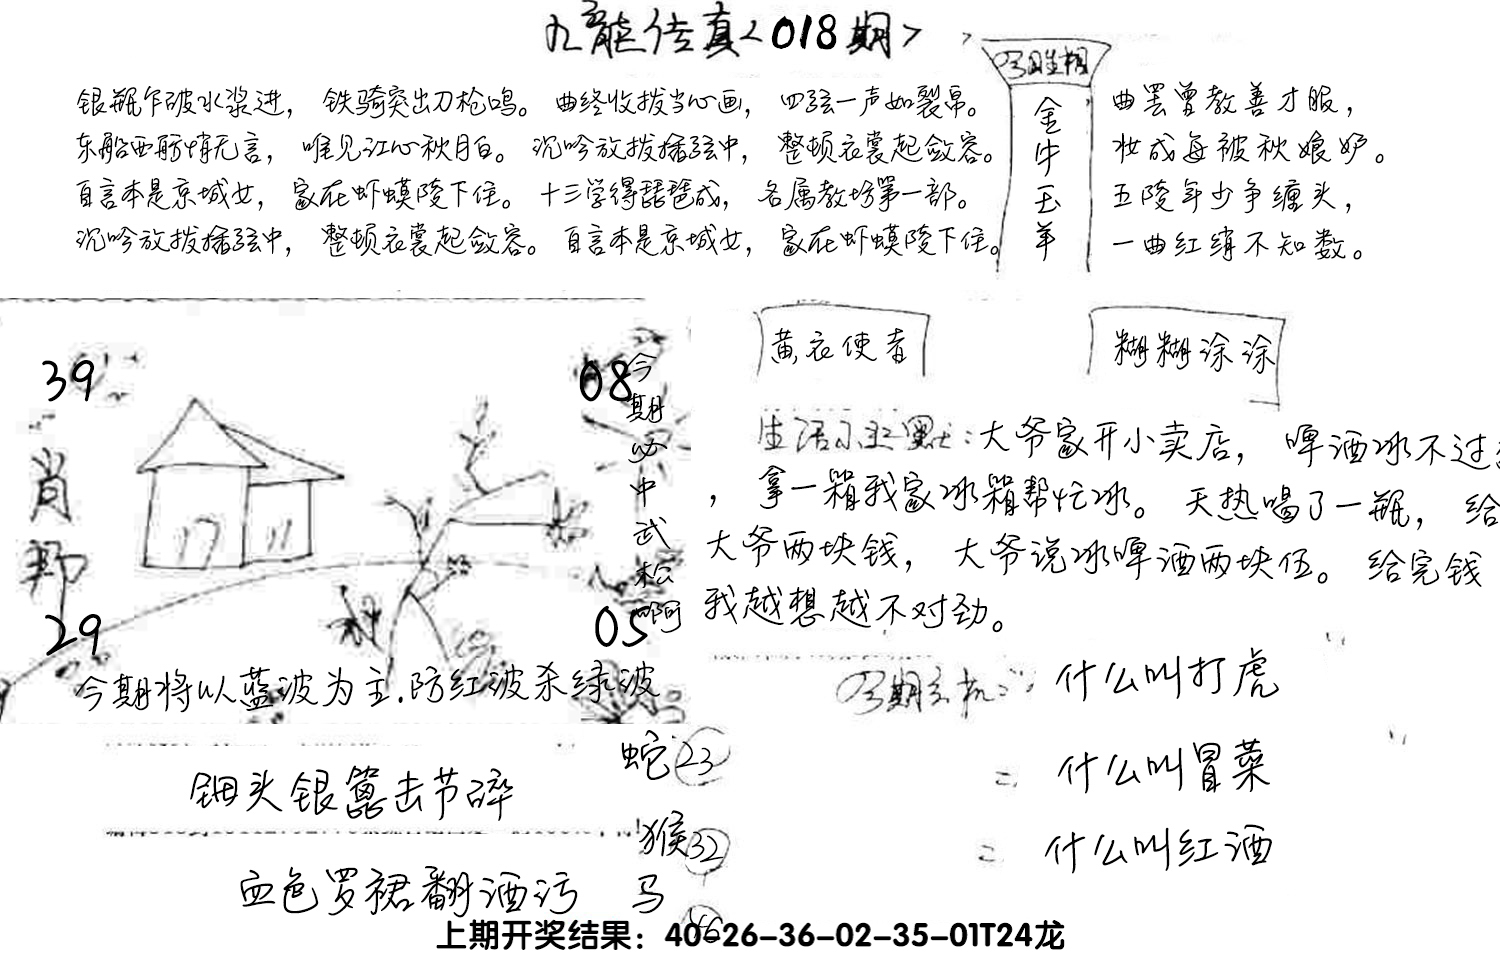 九龍传真<018期>
银瓶乍破水浆迸，铁骑突出刀枪鸣。曲终收拔当心画，四弦一声如裂帛。
东船西舫悄无言，唯见江心秋月白。沉吟放拨插弦中，整顿衣裳起敛容。
自言本是京城女，家在虾蟆陵下住。十三学得琵琶成，名属教坊第一部。
沉吟放拨插弦中，整顿衣裳起敛容。自言本是京城女，家在虾蟆陵下住。
今期生相
金牛玉羊
曲罢曾教善才服，
妆成每被秋娘妒。
五陵年少争缠头，
一曲红绡不知数。
39
08
肖
29
05
今期必中武松啊
今期将以蓝波为主.防红波杀绿波
黄衣使者
糊糊涂涂
生活小幽默:大爷家开小卖店，啤酒冰不过
，拿一箱我家冰箱帮忙冰。天热喝了一瓶，给
大爷两块钱，大爷说冰啤酒两块伍。给完钱
我越想越不对劲。
今期玄机:什么叫打虎
什么叫冒菜
什么叫红酒
钿头银篦击节碎
血色罗裙翻酒污
蛇23
猴32
马46
上期开奖结果：40-26-36-02-35-01T24龙